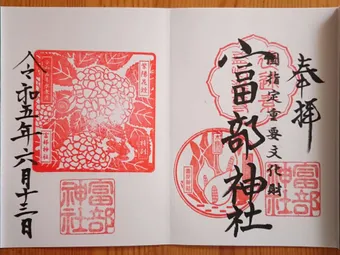 奉拝
國指定重要文化財
富部神社
富部神社
令和五年六月十三日
富部神社